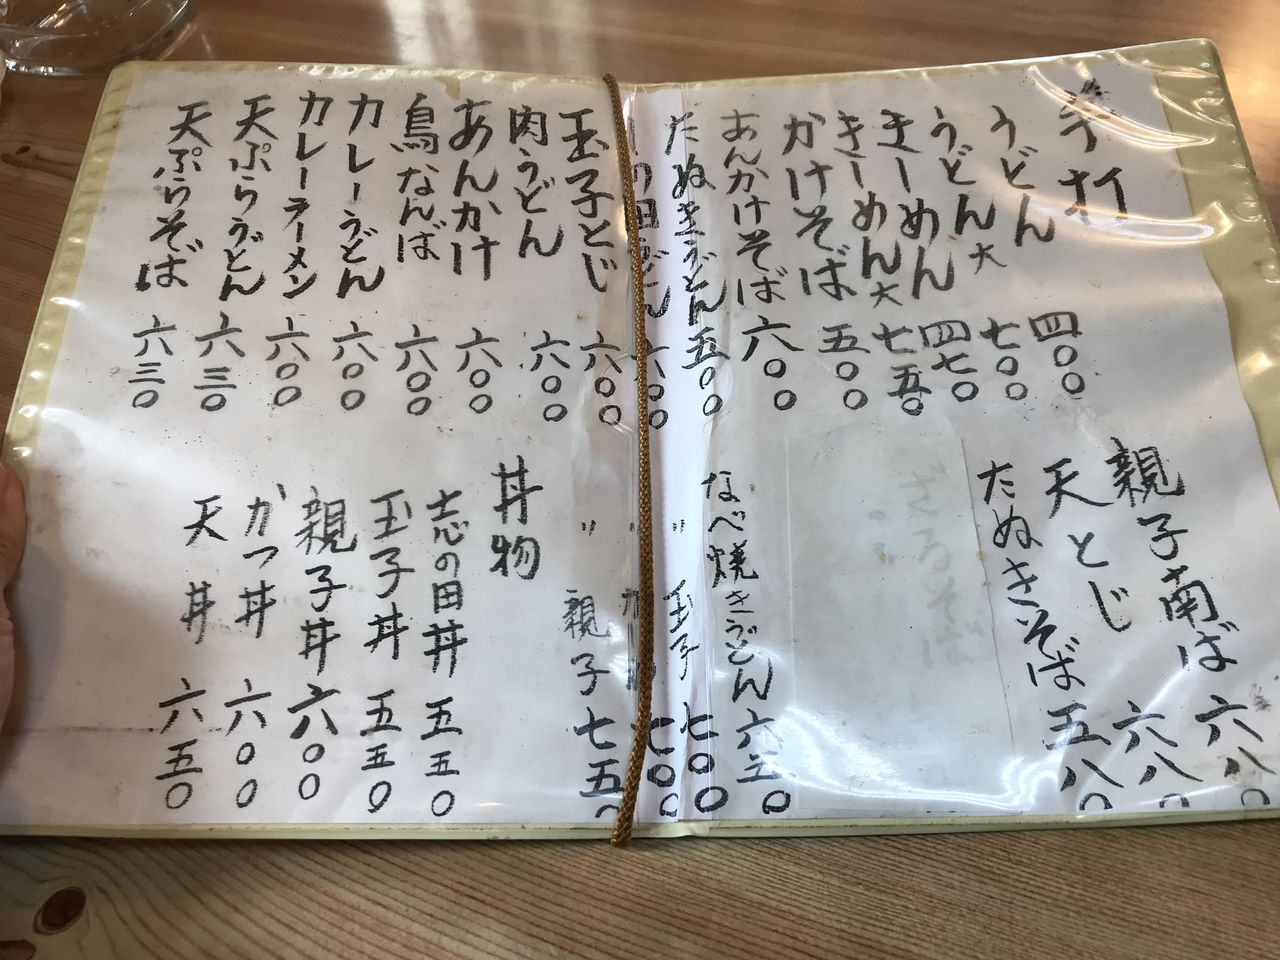 手打
うどん 四〇〇
うどん大 七〇〇
きしめん 四七〇
きしめん大 七五〇
かけそば 五〇〇
あんかけそば 六〇〇
たぬきうどん 五〇〇
の田うどん 六〇〇
玉子とじ 六〇〇
肉うどん 六〇〇
あんかけ 六〇〇
鳥なんば 六〇〇
カレーうどん 六〇〇
カレーラーメン 六〇〇
天ぷらうどん 六三〇
天ぷらそば 六三〇
親子南ば 六八〇
天とじ 六八〇
たぬきそば 五八〇
ざるそば
なべ焼きうどん 六五〇
〃 玉子 七〇〇
〃 七〇〇
〃 親子 七五〇
丼物
志の田丼 五五〇
玉子丼 五五〇
親子丼 六〇〇
かつ丼 六〇〇
天丼 六五〇